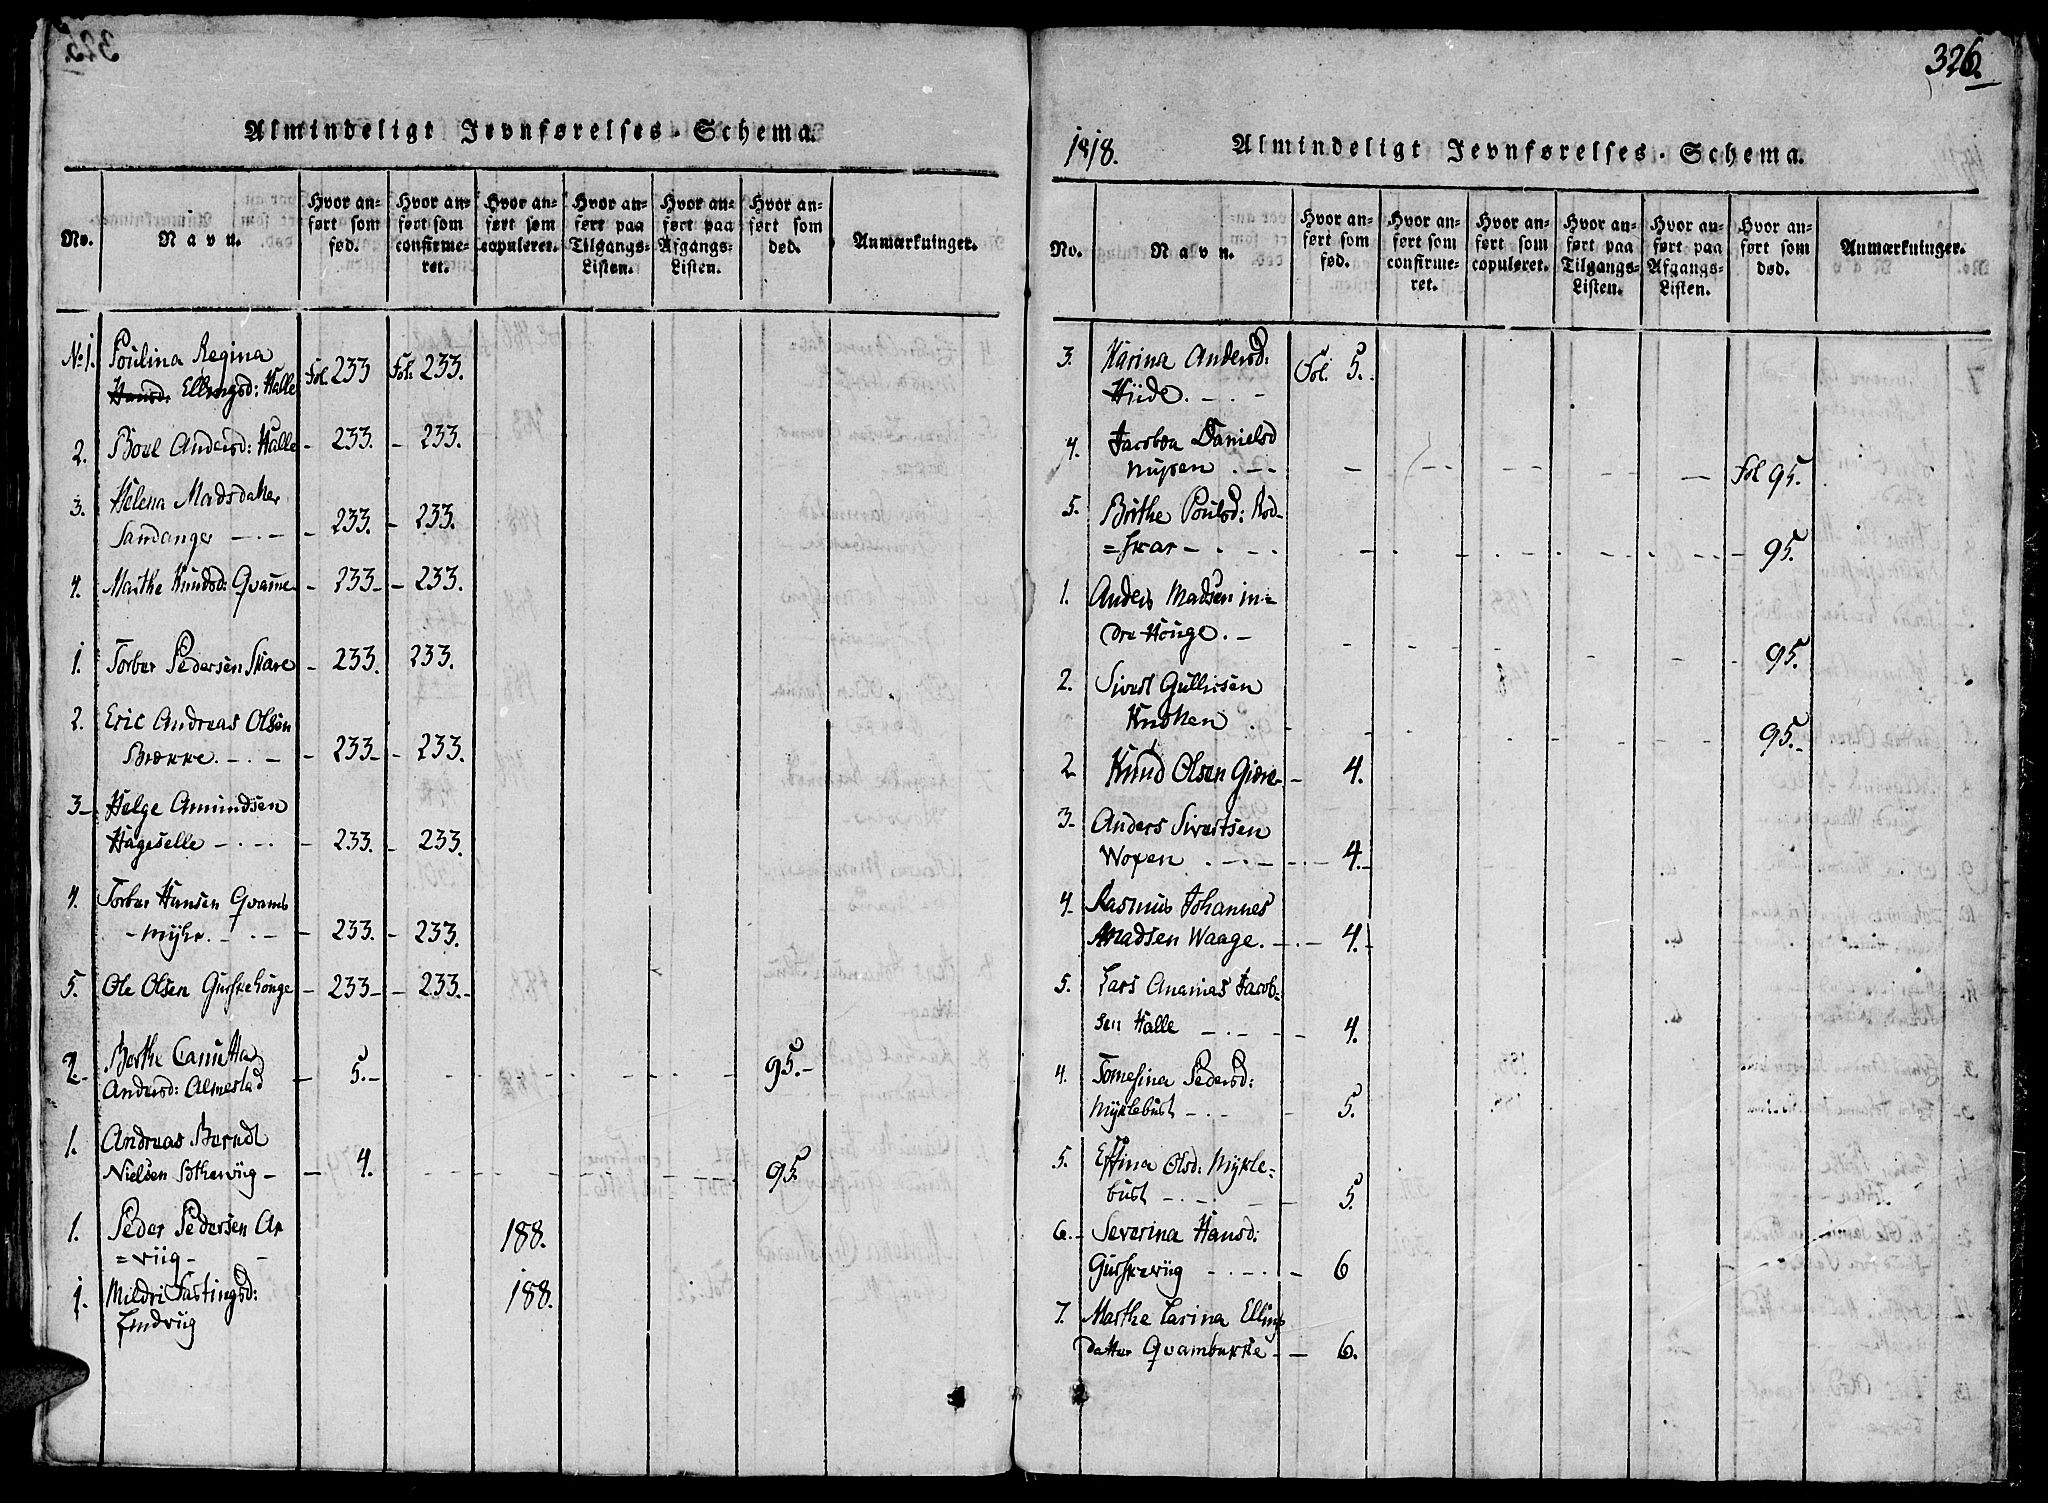 Almindeligt Jevnførelses-Schema.
No.
Navn.
Hvor an-
ført som
fød.
Hvor an-
ført som
confirme-
ret.
Hvor an-
ført som
copuleret.
Hvor an-
ført paa
Tilgangs-
Listen.
Hvor an-
ført paa
Afgangs-
Listen.
Hvor an-
ført som
død.
Anmærkninger.
No 1. Poulina Regina
Hansd: Ellingsd: Halle Fol. 233 Fol: 233.
2. Boel Andersd: Halle - 233. - 233.
3. Helena Madsdatter
Sandanger - . - - 233. - 233.
4. Marthe Knudsd: Qvame - 233 - - 233.
1. Torber Pedersen Skare - 233. 233.
2. Eric Andreas Olsen
Brække. - . - - 233 - - 233.
3 - Helge Amundsen
Hageselle - . - . - - 233. - 233.
4. Torber Hansen Qvams
- myhr. - . - - 233. - 233.
5. Ole Olsen Gurskehouge - 233 - - 233. -
2. - Berthe Canutta
Andersd: Almestad - 5. - 95. -
1. Andreas Berndt
Nielsen Sothewiig - - 4. 95.
1. Peder Pedersen Ar
= viig - 188.
1. Mildri Fastingsd:
Lindviig 188.
326.
1818.
Almindeligt Jevnførelses-Schema.
No.
Navn.
Hvor an-
ført som
fød.
Hvor an-
ført som
confirme-
ret.
Hvor an-
ført som
copuleret.
Hvor an-
ført paa
Tilgangs-
Listen.
Hvor an-
ført paa
Afgangs-
Listen.
Hvor an-
ført som
død.
Anmærkninger.
3. Karina Andersd: Fol. 5.
Hiide. - . -
4. Jacobea Danielsd
Myren . - . Fol 95.
5. Birthe Poulsd: Rod-
= skar - . - . 95.
1. Anders Madsen in=
dre Houge. - 95.
2. Sivert Gullicsen
Knotten 95. -
2 Knud Olsen Giære - - 4.
3 - Anders Sivertsen
Woxen . - . - . - 4. -
4 - Rasmus Johannes
Madsen Waage. - . - 4. -
5. Lars Ananias Jacob=
sen Halle - . - - 4.
4. Tomesina Pedersd:
Myklebust - . - - 5.
5. Effina Olsd: Mykle=
bust - . - . - 5.
6. - Severina Hansd:
Gurskewiig - . - . - 6
7. Marthe Carina Ellings
datter Qvambekke - - 6.